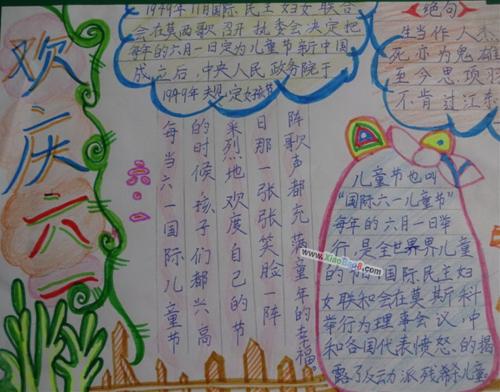 欢庆六一
1949年11月国际民主妇女联合
会在莫斯歌召开执委会决定把
每年的六月一日定为儿童节新中国
成立之后,中央人民政务院于
绝句
生当作人杰
死亦为鬼雄
至今思项羽
不肯过江东
六·一
每当六一国际儿童节
的时候,孩子们都兴高
采烈地欢度自己的节
日那一张张笑脸一阵
阵歌声都充满童年的幸福。
儿童节也叫
“国际六一儿童节”
每年的六月一日举
行,是全世界界儿童
的节 国际民主妇
女联和会在莫斯科
举行为理事会议,中
和各国代表愤怒、的揭
露了反动派残希儿童
www.XiaoBao8.com